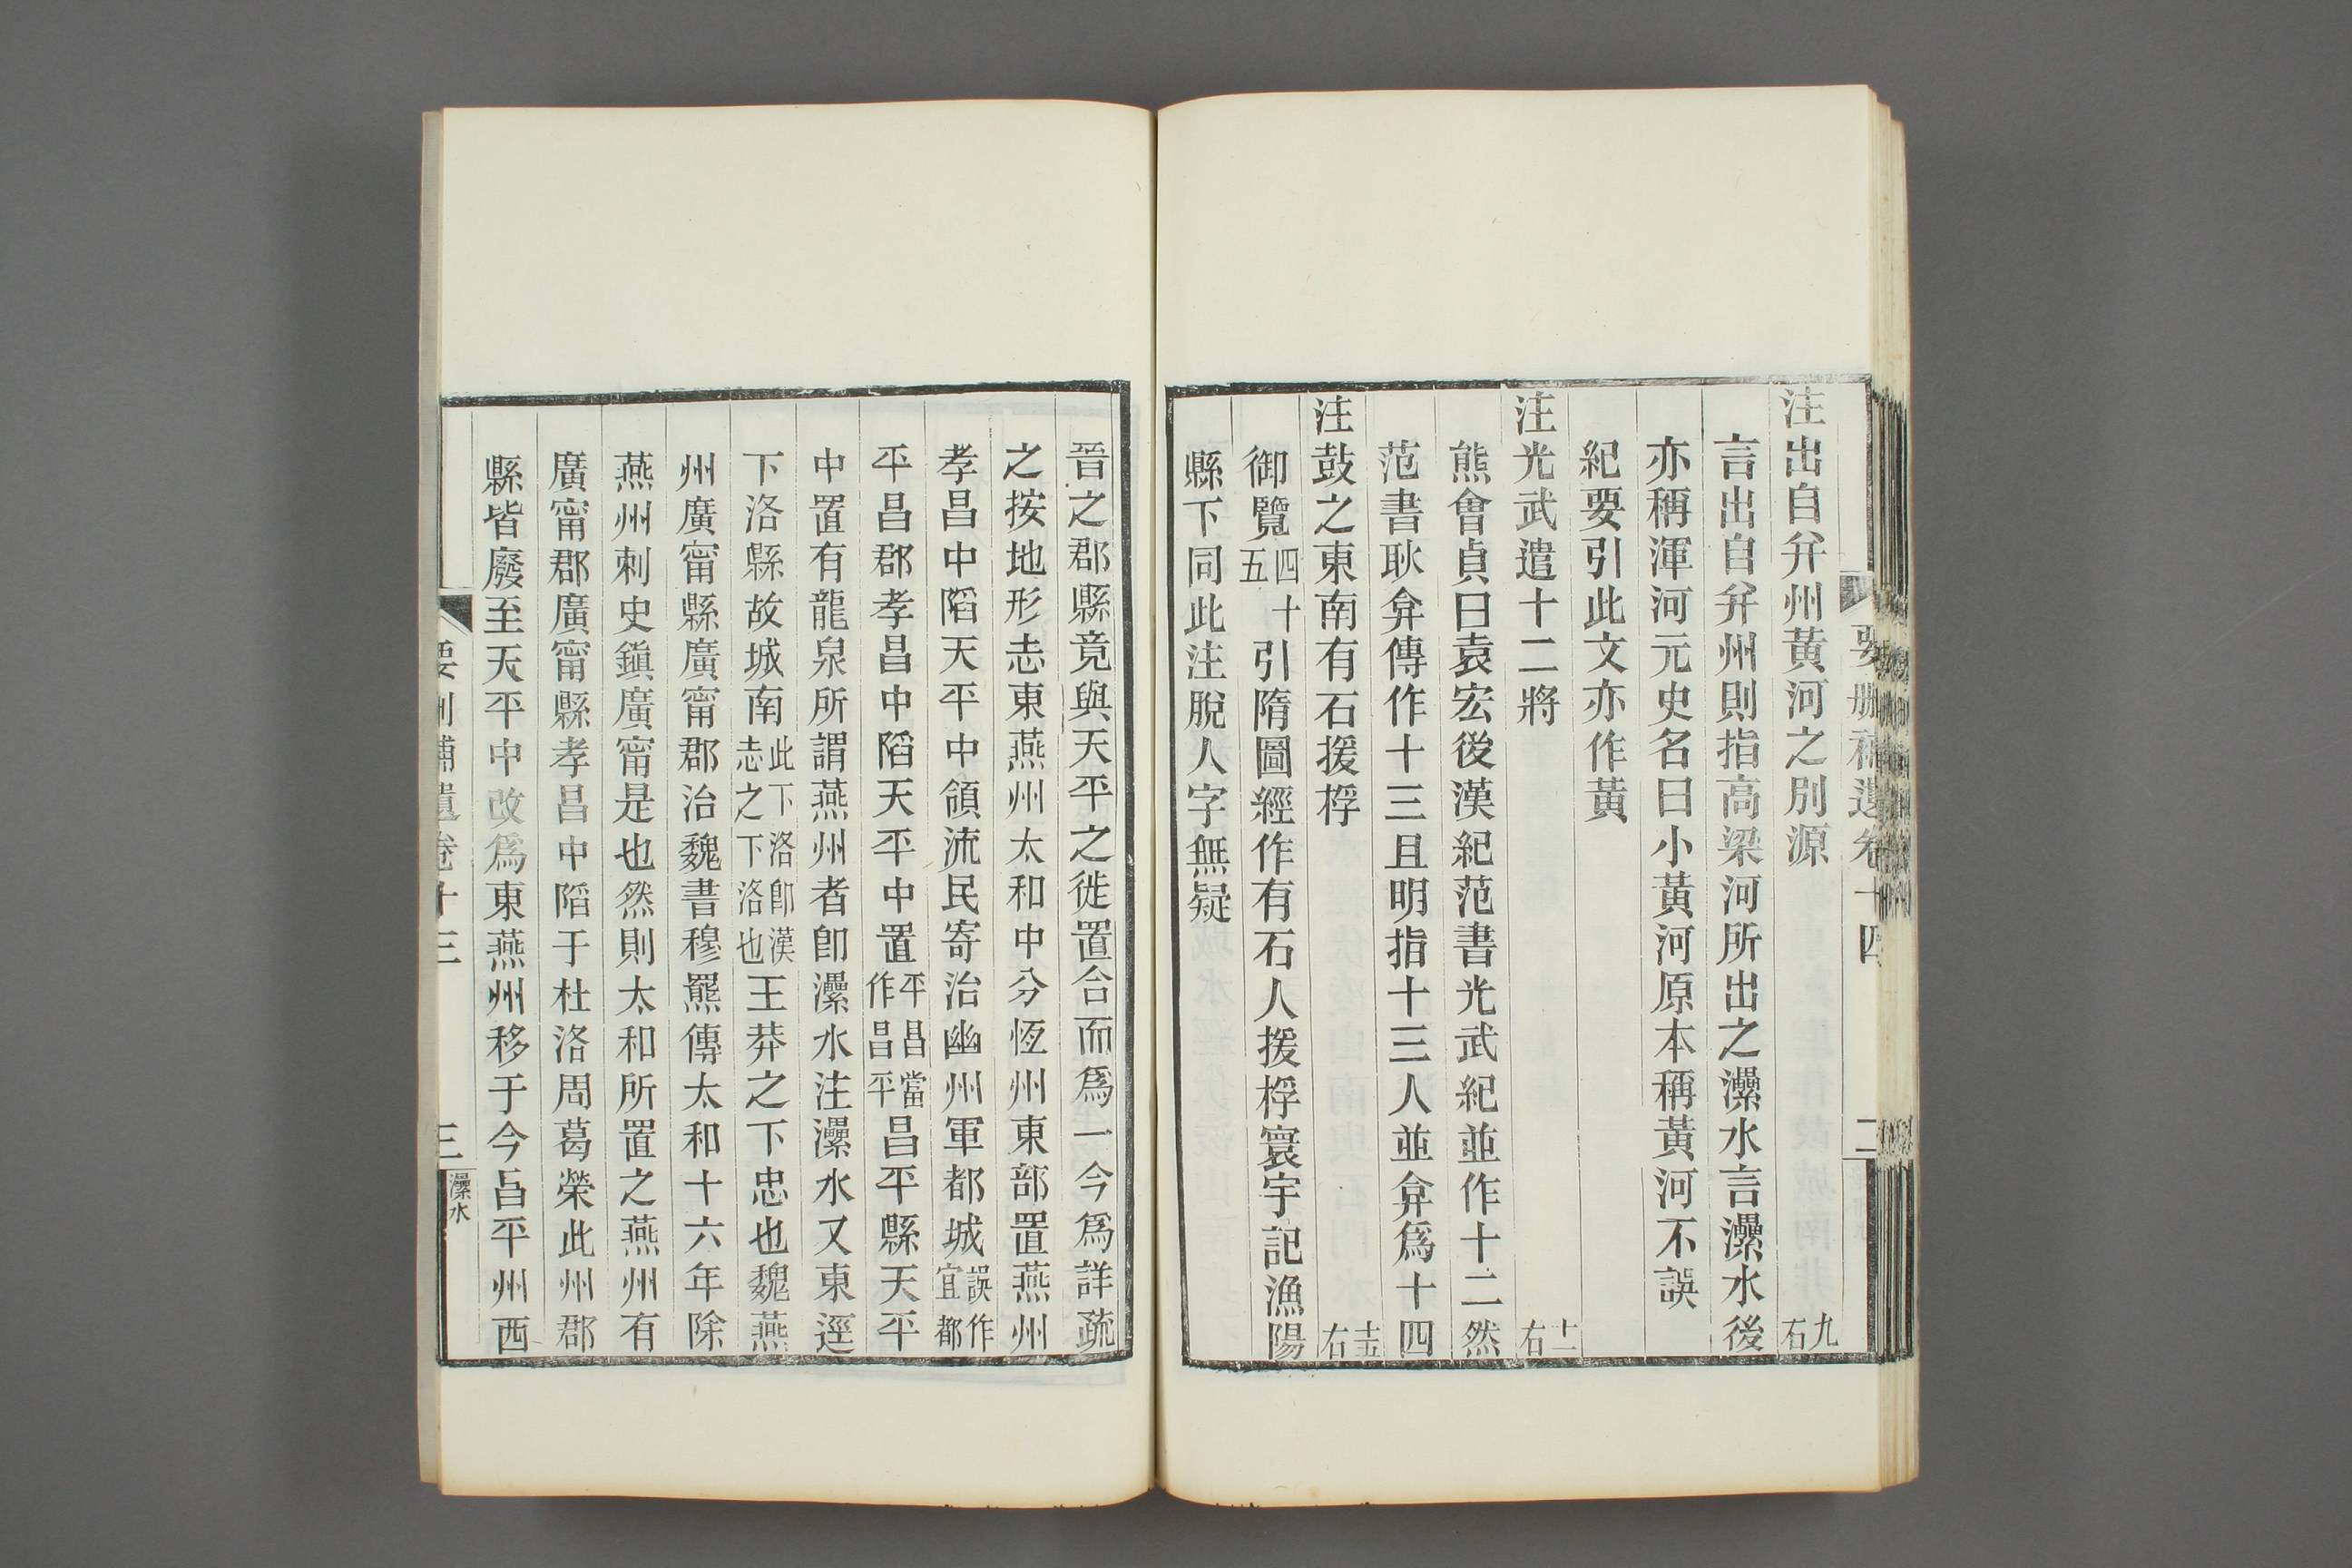 要刪補遺卷十四
二
注出自弁州黃河之別源 九右
言出自弁州則指高梁河所出之灅水言灅水後
亦稱渾河元史名曰小黃河原本稱黃河不誤
紀要引此文亦作黃
注光武遣十二將 十一右
熊會貞曰袁宏後漢紀范書光武紀並作十二然
范書耿弇傳作十三且明指十三人並弇爲十四
注鼓之東南有石援桴 十五右
御覽四十五引隋圖經作有石人援桴寰宇記漁陽
縣下同此注脫人字無疑
晉之郡縣竟與天平之徙置合而爲一今爲詳疏
之按地形志東燕州太和中分恆州東部置燕州
孝昌中陷天平中領流民寄治幽州軍都城誤作宜都
平昌郡孝昌中陷天平中置平昌當作昌平昌平縣天平
中置有龍泉所謂燕州者卽灅水注灅水又東逕
下洛縣故城南此下洛卽漢志之下洛也王莽之下忠也魏燕
州廣甯縣廣甯郡治魏書穆羆傳太和十六年除
燕州刺史鎭廣甯是也然則太和所置之燕州有
廣甯郡廣甯縣孝昌中陷于杜洛周葛榮此州郡
縣皆廢至天平中改爲東燕州移于今昌平州西
要刪補遺卷十三
三
灅水